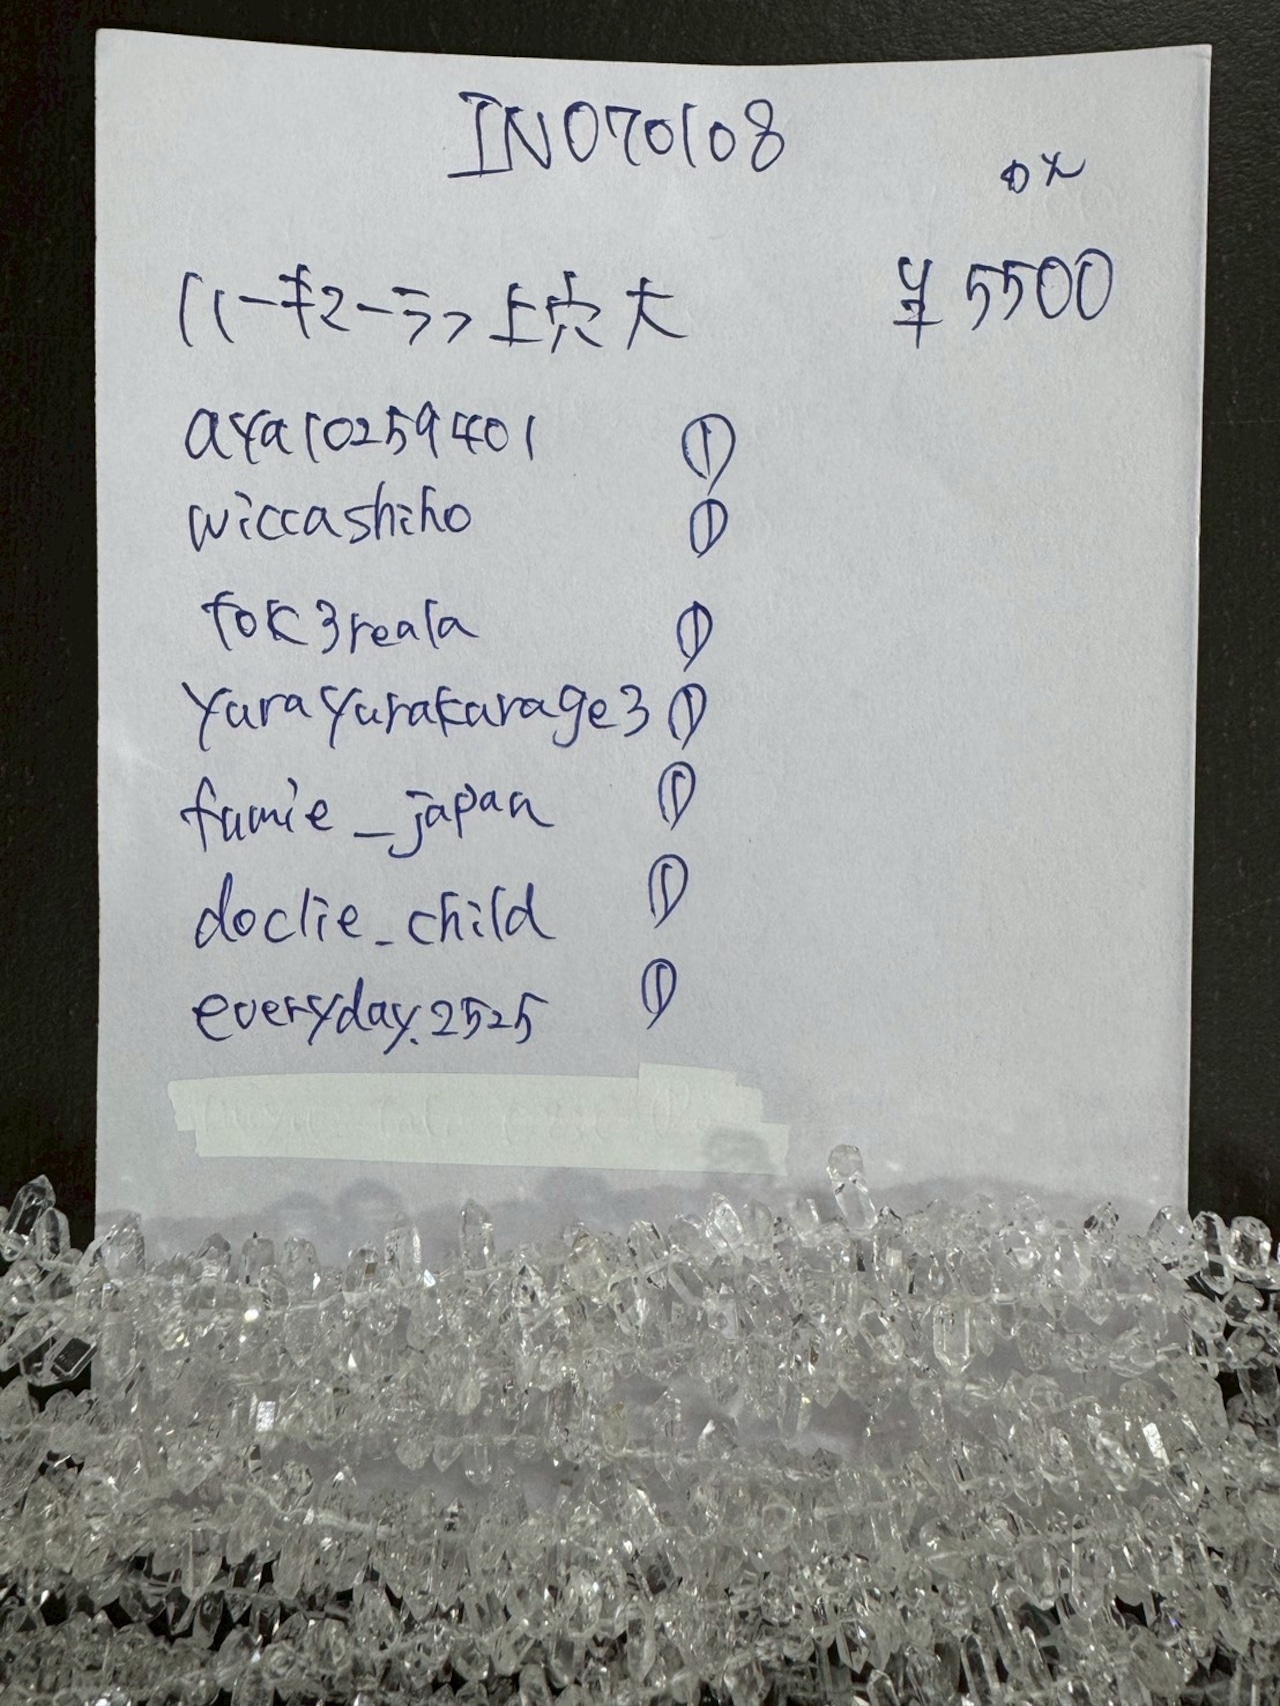 IN070108
ハーキマーラフ上穴大 ¥5500
aya1029401
wiccashiho ①
tok3reala ①
yurayurakurage3 ①
fumie_japan ①
doclie_child ①
everyday.2525 ①